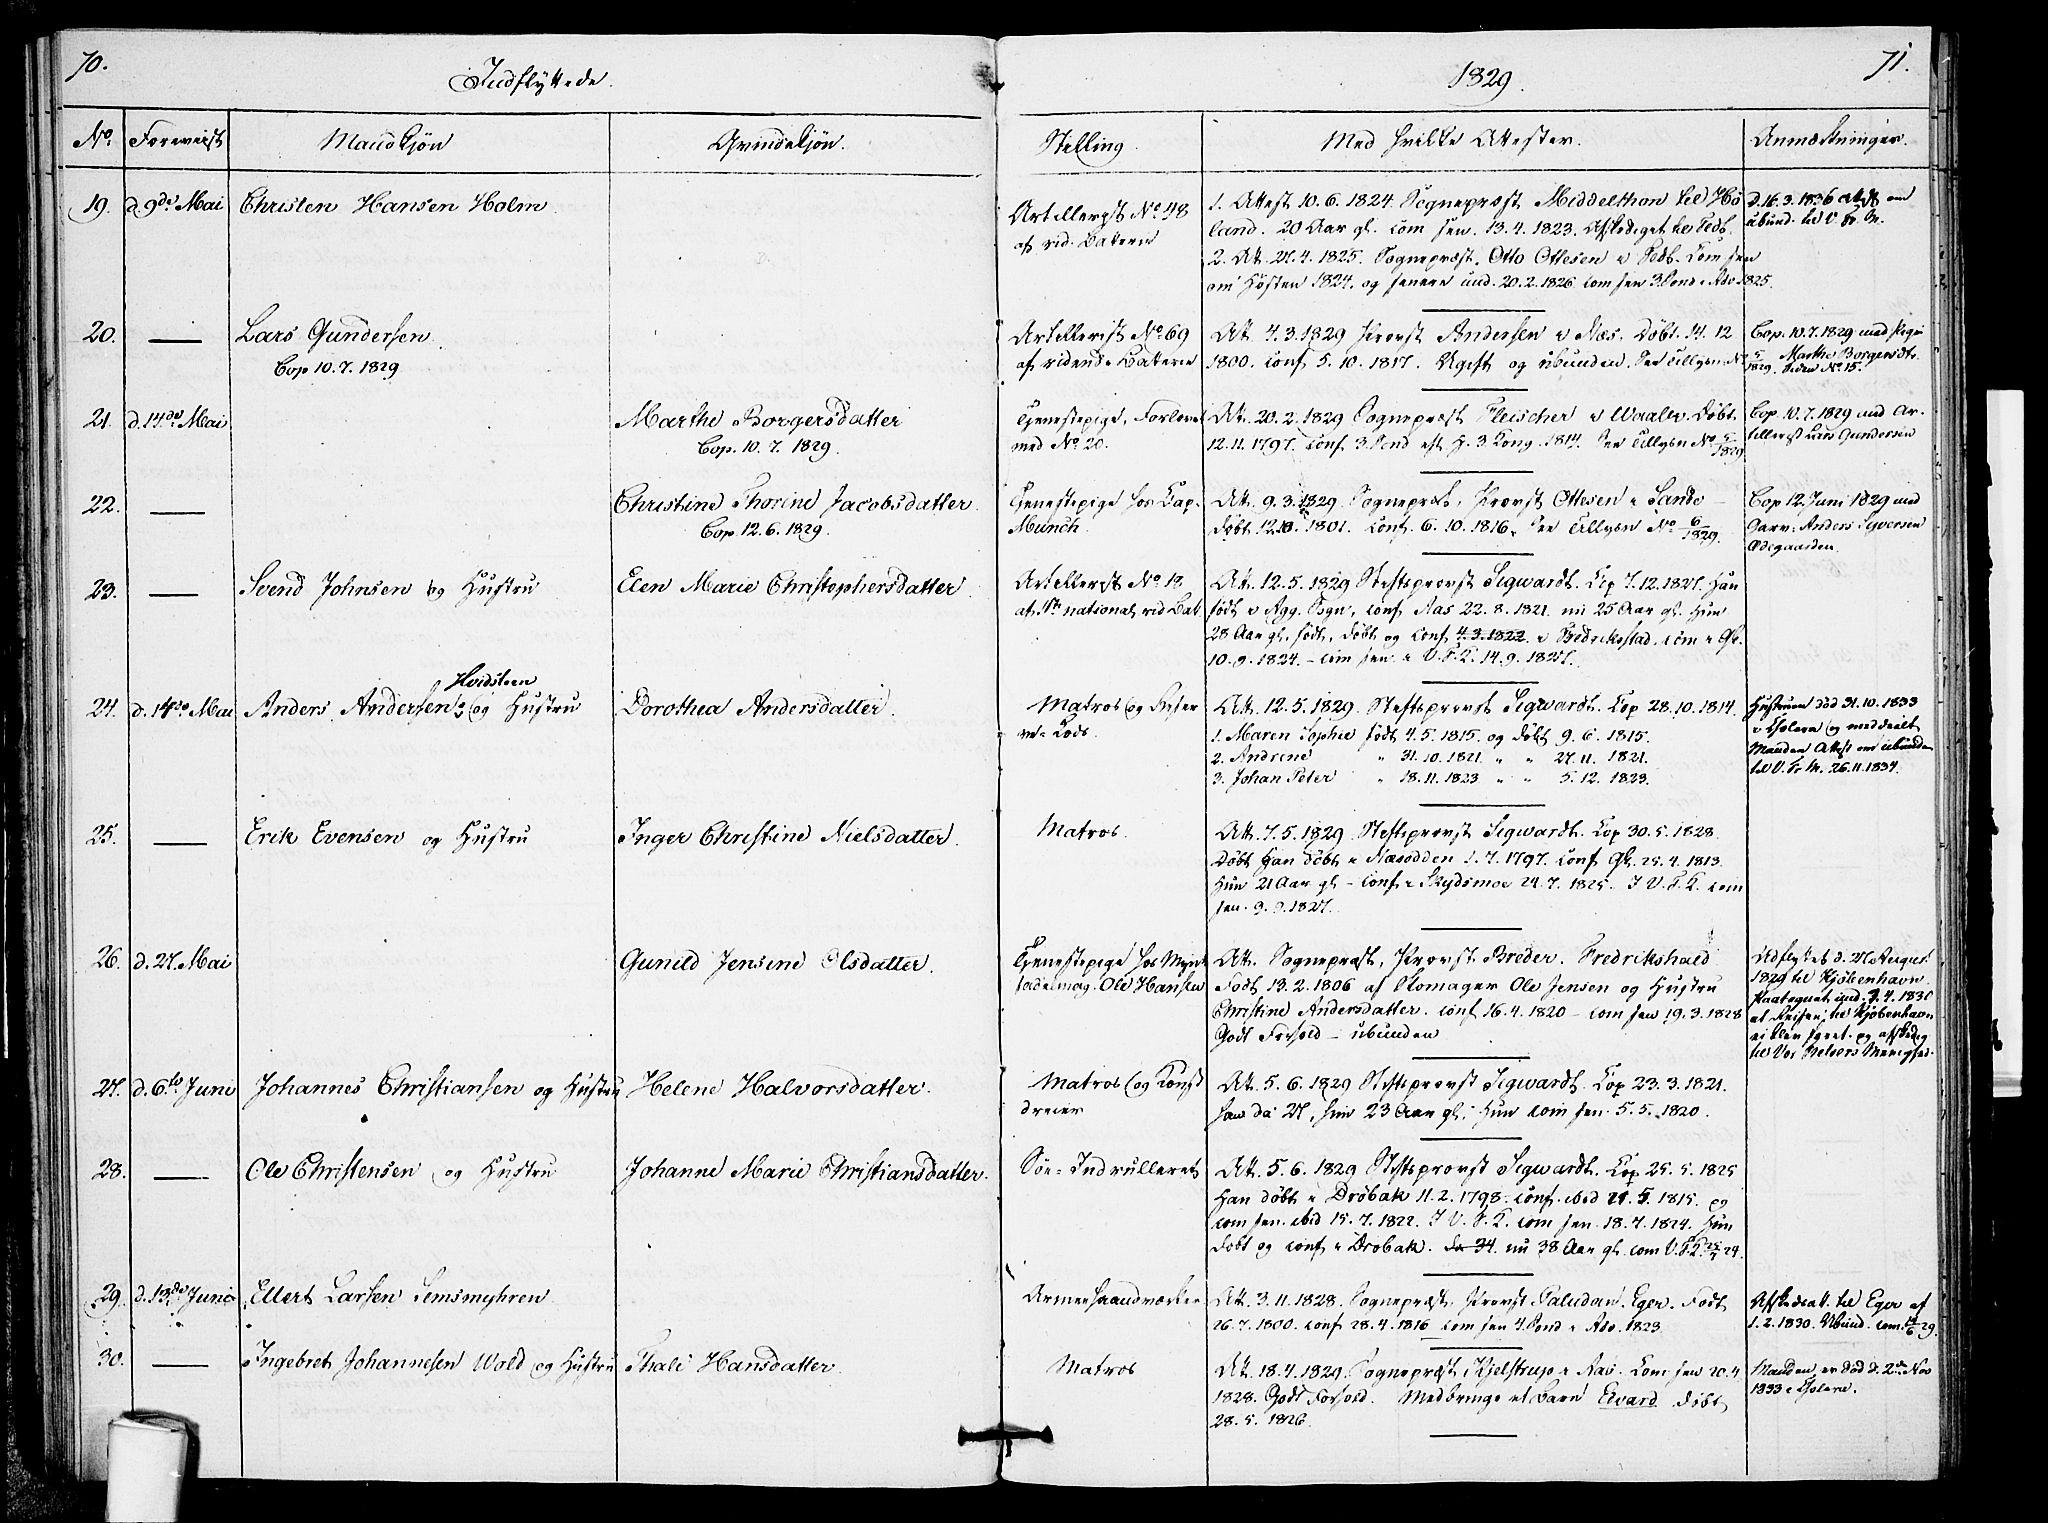 70.
Indflyttede.
1829.
71.
No. Foreviist Mandkjøn Qvindekjøn. Stilling. Med hvilke Attester. Anmærkninger.
19. d. 9de Mai Christen Hansen Holm.
Artillerist No. 48
af rid. Batterie
1. Attest 10. 6. 1824. Sognepræst Middelthon til Hø
land. 20 Aar gl. Com sen. 13. 4. 1823. Afskediget til Feds.
2. Att. 27. 4. 1825. Sognepræst. Otto Ottesen
om Høsten 1824. og senere 20. 2. 1826 com sen 3. Sønd i Adv. 1825.
d. 16. 3. 1836 Att. om
ubund. til V. Fr. M.
20. — Lars Gundersen.
Cop 10. 7. 1829
Artillerist No. 69
af ridende Batterie
Att. 4. 3. 1829 Provst Andersen i Næs. Døbt. 14. 12
1800. Conf 5. 10. 1817. Ugift og ubunden. See Tillysn. No
Cop. 10. 7. 1829 med Pige
5/1829. Marthe Borgersdtr.
Siden No. 15.
21. d. 14de Mai Marthe Borgersdatter
Cop. 10. 7. 1829.
Tjenestepige, Forlovet
med No. 20.
Att. 20. 2. 1829 Sognepræst Fleischer i Waaler. Døbt.
12. 11. 1797. Conf 3. Sønd eft. H. 3 Kong. 1814. See Tillysn No. 5/1829
Cop. 10. 7. 1829 med Ar-
tillerist Lars Gundersen
22. — Christine Thorine Jacobsdatter.
Cop. 12. 6. 1829.
Tjenestepige hos Cap.
Munch.
Att. 9. 3. 1829 Sognepræst, Provst Ottesen i Sande —
Døbt 12. 10. 1801. Conf. 6. 10. 1816. See Tillysn No. 6/1829.
Cop 12. Juni 1829 med
Garv. Anders Syversen
Ødegaarden.
23. — Svend Johnsen og Hustru Elen Marie Christophersdatter.
Artillerist No. 18
national rid Batt.
Att. 12. 5. 1829 Stiftsprovst Sigwardt. Cop 7. 12. 1827. Han
født i Agg. Sogn, conf Aas 22. 8. 1821. nu 25 Aar gl. Hun
28 Aar gl. født, døbt og conf 4. 3. 1822 i Fredriksstad. com i
10. 9. 1824. — com sen. i V. F. K. 14. 9. 1827.
24. d. 14de Mai Anders Andersen Hvidsteen og Hustru Dorothea Andersdatter.
Matros og Reser
ve-Lods.
Att. 12. 5. 1829. Stiftsprovst Sigwardt. Cop 28. 10. 1814.
1. Maren Sophie født 4. 5. 1815. og døbt 9. 6. 1815.
2. Andrine " 31. 10. 1821. " " 27. 11. 1821.
3. Johan Peter " 18. 11. 1823 " " 5. 12. 1823.
Hustruen død 31. 10. 1833
i Cholera og meddeelt
Manden Attest om ubunden
til V. Fr. M. 26. 11. 1834.
25. — Erik Evensen og Hustru Inger Christine Nielsdatter.
Matros.
Att. 7. 5. 1829. Stiftsprovst Sigwardt. Cop 30. 5. 1828.
Døbt Han døbt i Næsodden 1. 7. 1797. Conf. 25. 4. 1813.
Hun 21 Aar gl — conf i Skydsmoe 24. 7. 1825. I V. F. K. com
sen. 9. 9. 1827.
26. d. 27. Mai Gunild Jensine Olsdatter.
Tjenestepige hos
Ole Hansen
Att. Sognepræst, Provst Breder. Fredrikshald
Født 13. 2. 1806 af Skomager Ole Jensen og Hustru
Christine Andersdatter. conf 16. 4. 1820 — com sen 19. 3. 1828
Godt Forhold — ubunden
Udflyttet d. August
1829 til Kjøbenhavn.
Paategnet und. 7. 4. 1830
at Reisen til Kjøbenhavn
ei blev
til Vor Frelsers Menighed.
27. d. 6te Juni Johannes Christiansen og Hustru Helene Halvorsdatter.
Matros og Kunst
dreier
Att. 5. 6. 1829 Stiftsprovst Sigwardt. Cop 23. 3. 1821.
han da 27, hun 23 Aar gl. Hun com sen. 5. 5. 1820.
28. — Ole Christensen og Hustru Johanne Marie Christiansdatter.
Søe-Indrulleret
Att. 5. 6. 1829 Stiftsprovst Sigwardt. Cop 25. 5. 1825
Han døbt i Drøbak 11. 2. 1798. conf. ibid 21. 5. 1815. og
com sen. ibid 15. 7. 1822. I V. F. K. com sen. 18. 7. 1824. Hun
døbt og conf i Drøbak. da 34. nu 38 Aar gl. com V. F. K. 24.
29. d. 13de Juni Ellert Larsen Semsmyhren.
Armeehaandværker
Att. 3. 11. 1828. Sognepræst, Provst Paludan. Eger. Født
26. 7. 1800. conf 28. 4. 1816 com sen 4. Sønd i Adv. 1823
Afskedsatt. til Eger af
1. 2. 1830. Ubund. com. 14/6 29.
30. — Ingebret Johannesen Wold og Hustru Thali Hansdatter.
Matros
Att. 18. 4. 1829. Sognepræst Kjelstrup i Aas. Com sen 20. 4
1828. Godt Forhold. Medbringe et Barn Edvard døbt
28. 5. 1826.
Manden er død d. 2den Nov
1833 i Cholera.